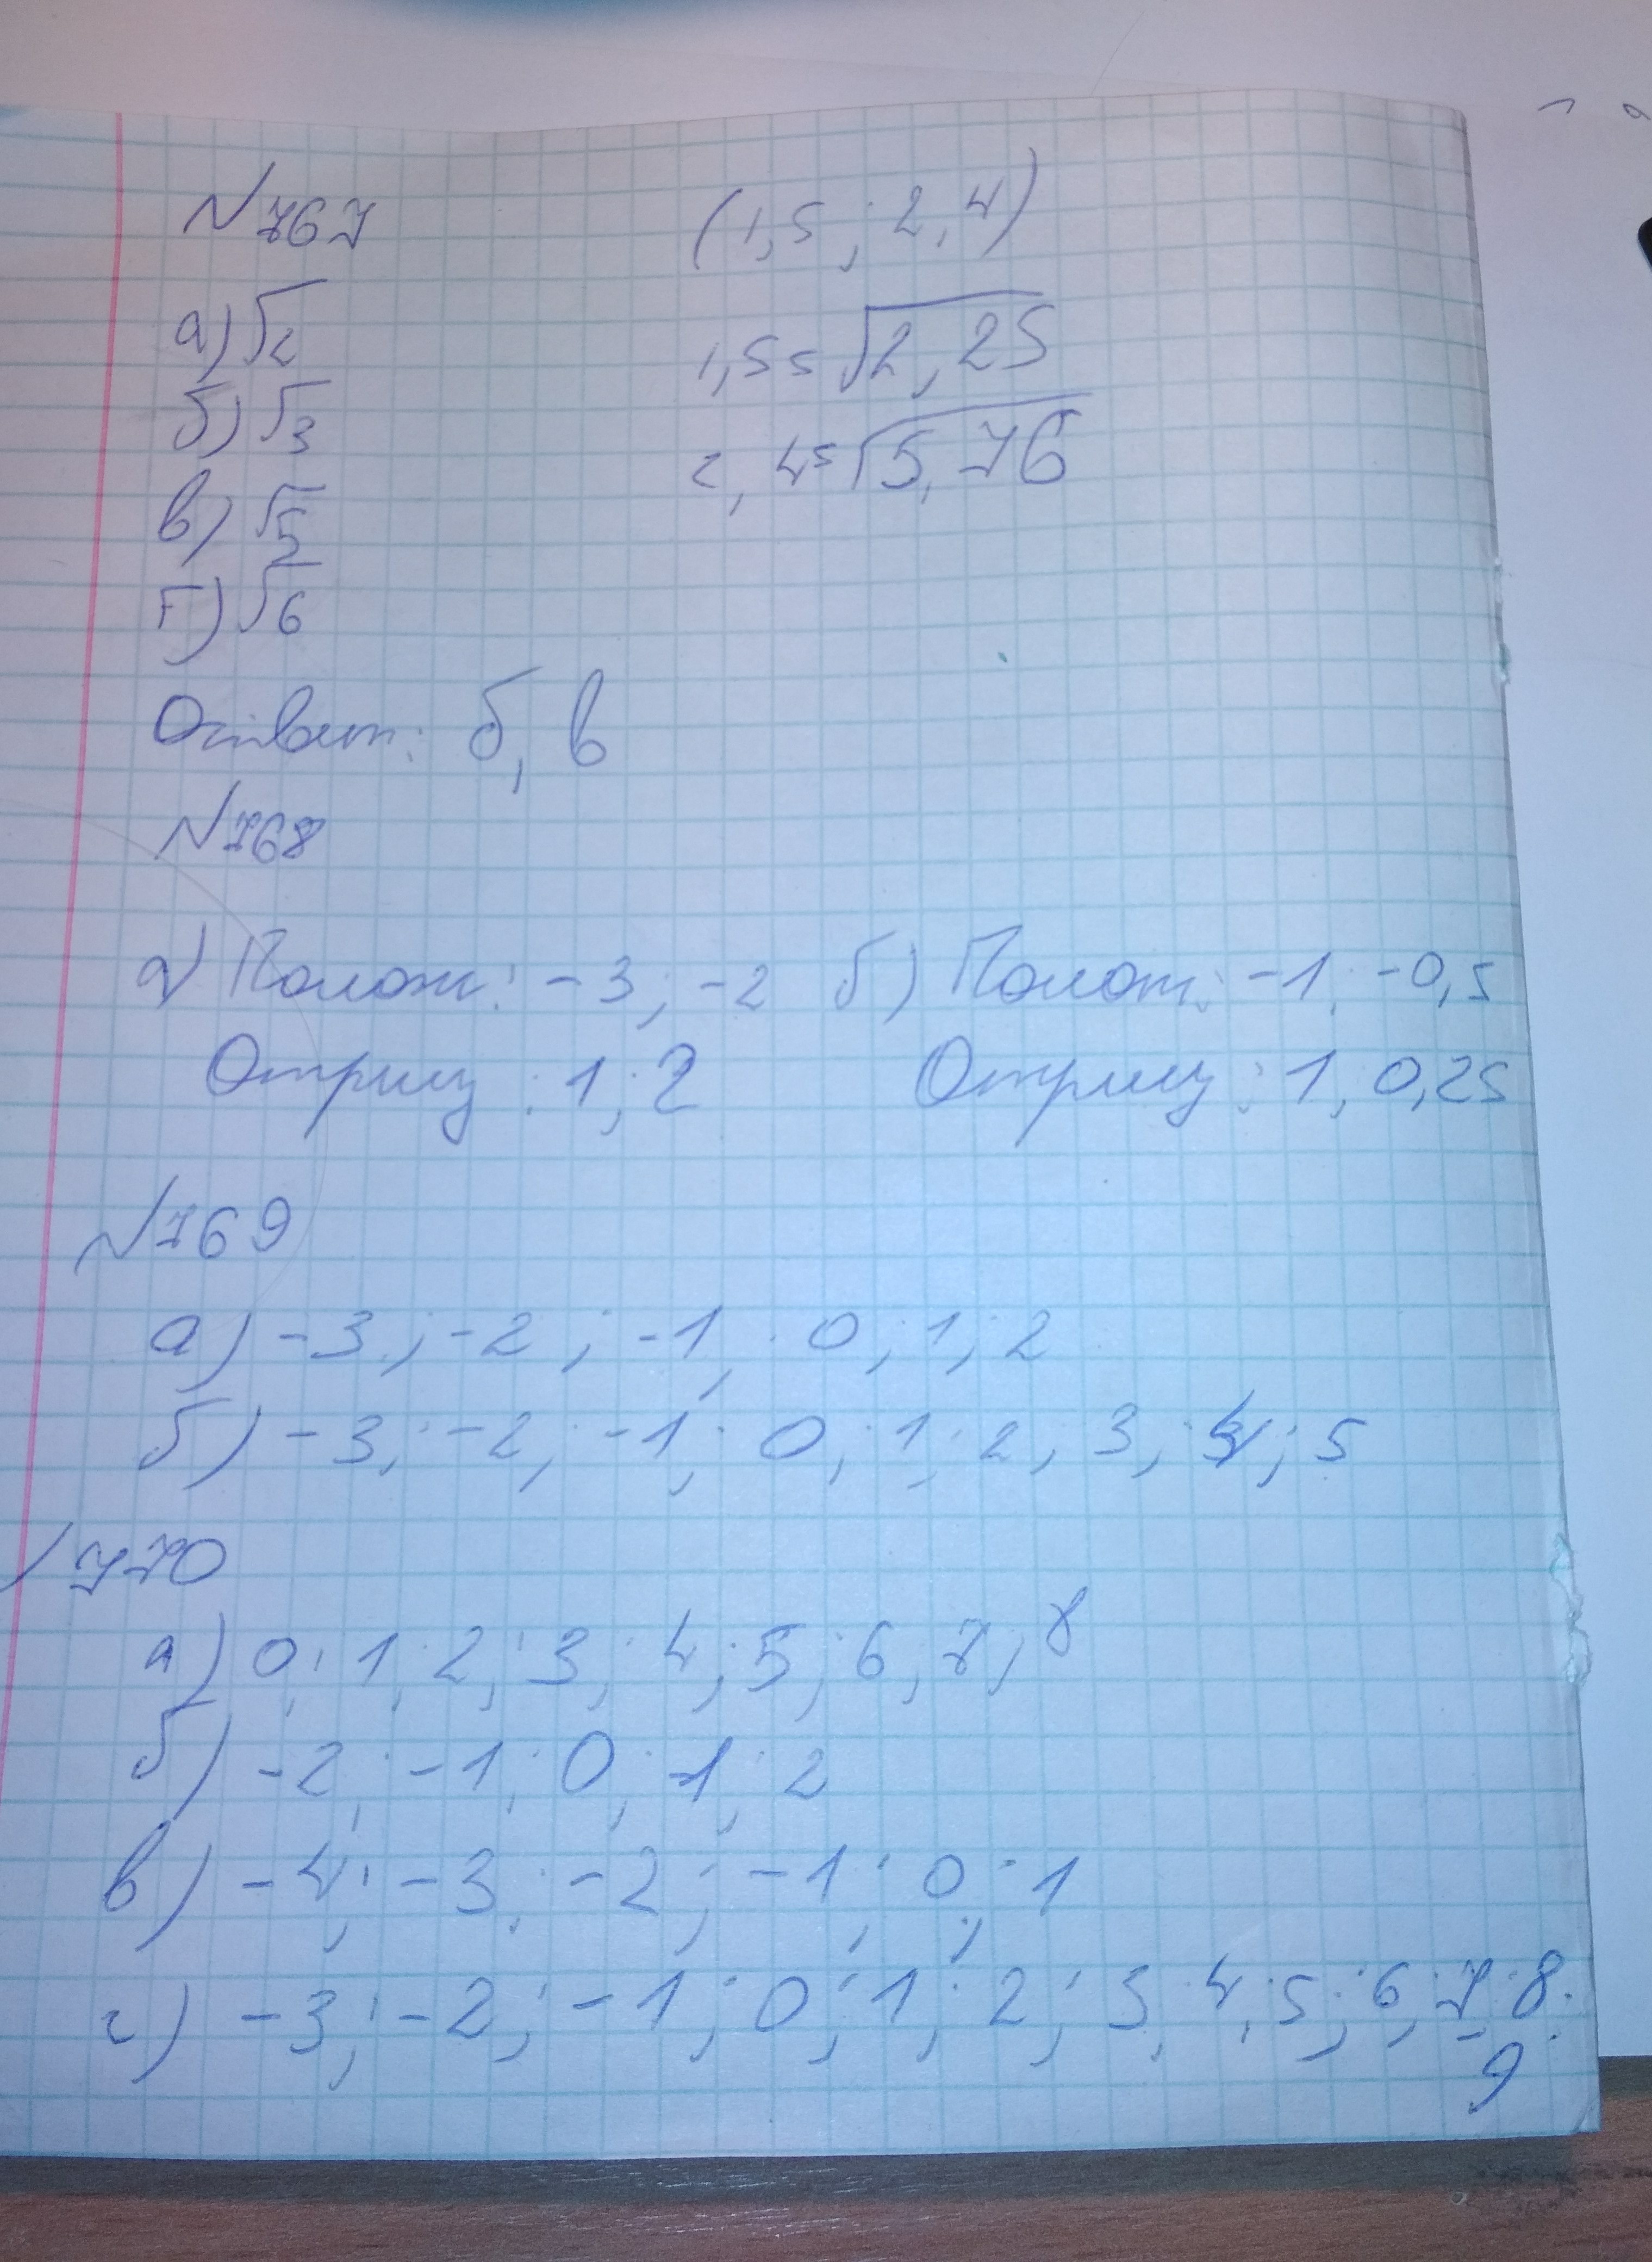 №767
(1,5; 2,4)
а) √2
1,5=√2,25
б) √3
2,4=√5,76
в) √5
г) √6
Ответ: б, в
№768
а) Полож: -3; -2 б) Полож: -1; -0,5
Отриц: 1; 2 Отриц: 1; 0,25
№769
а) -3; -2; -1; 0; 1; 2
б) -3; -2; -1; 0; 1; 2; 3; 4; 5
770
а) 0; 1; 2; 3; 4; 5; 6; 7; 8
б) -2; -1; 0; 1; 2
в) -4; -3; -2; -1; 0; 1
г) -3; -2; -1; 0; 1; 2; 3; 4; 5; 6; 7; 8;
9